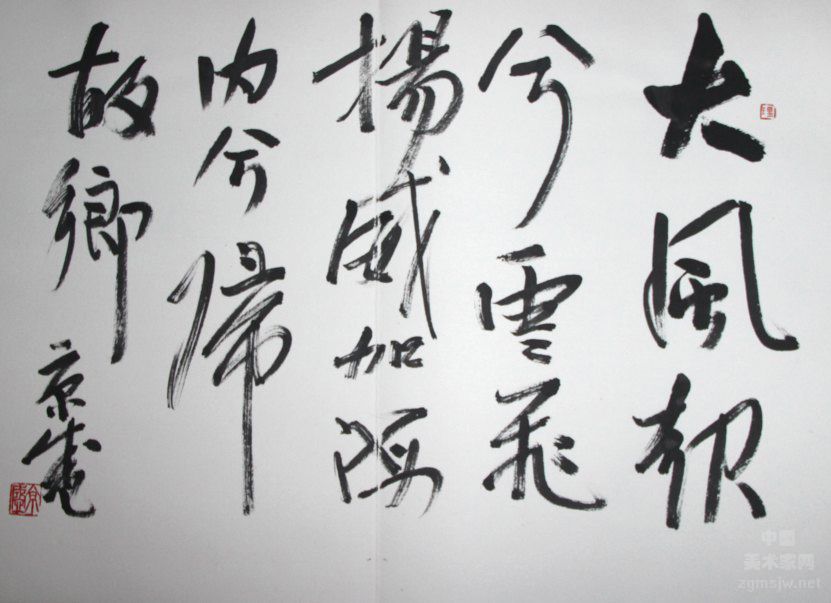 大風起
兮雲飛
揚威加海
内兮帰
故鄉
京
中国
美术家网
zgmsjw.net